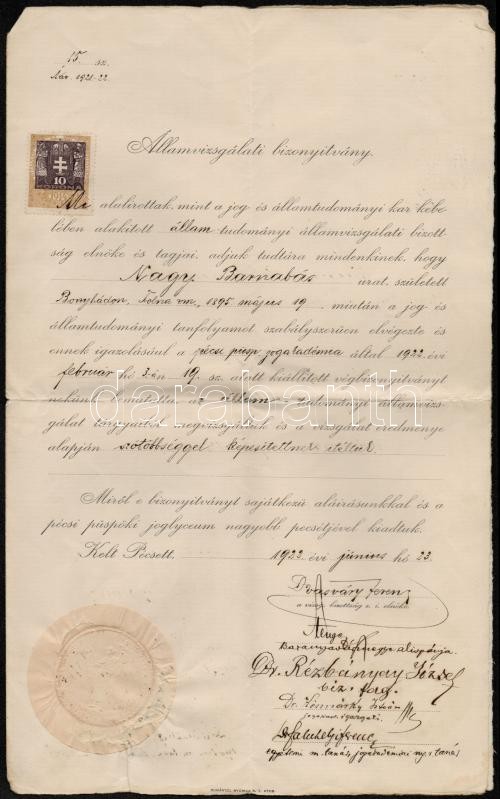 15. sz.
1921-22.
Államvizsgálati bizonyitvány.
10
KORONA
Mi alulirottak, mint a jog- és államtudományi kar kebe-
lében alakitott állam tudományi államvizsgálati bizott-
ság elnöke és tagjai, adjuk tudtára mindenkinek, hogy
Nagy Barnabás urat, született
Bonyhádon, Tolna vm, 1895 május 19, miután a jog- és
államtudományi tanfolyamot szabályszerüen elvégezte és
ennek igazolásául a pécsi püsp. jogakadémia által 1922. évi
február hó 3-án 19. sz. alatt kiállított végbizonyitványt
nekünk bemutatta, az állam- tudományi államvizs-
gálat tárgyaiból megvizsgáltuk és a vizsgálat eredménye
alapján szótöbbséggel képesítettnek itéltük.
darabanth
Miről e bizonyitványt sajátkezü aláirásunkkal és a
pécsi püspöki joglyceum nagyobb pecsétjével kiadtuk.
Kelt Pécsett, 1922. évi június hó 23.
Dr Vasváry Ferenc
a vizsg. bizottság e. i. elnöke.
Baranyavármegye alispánja.
Dr. Rézbányay József
biz. tag.
Dr. István
Dr. Faluhelyi Ferenc
egyetemi m. tanár, jogakadémiai ny. r. tanár